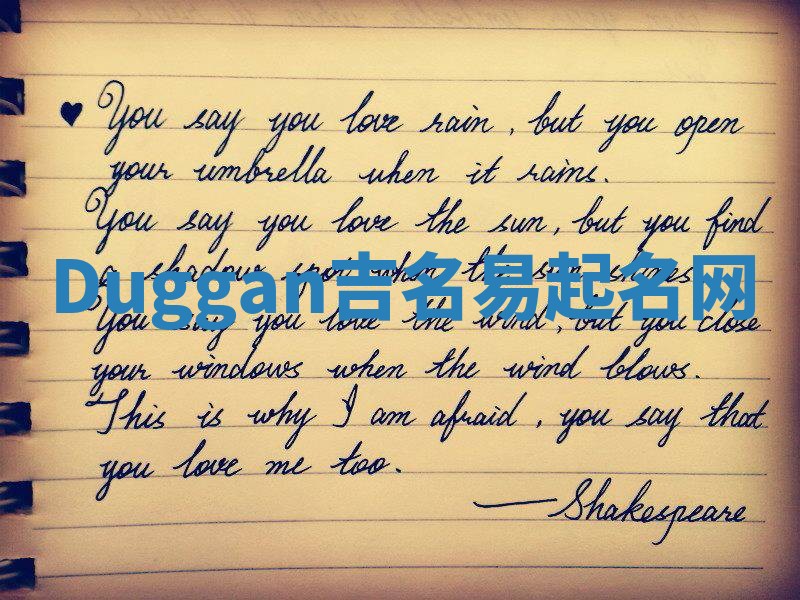 You say you love rain, but you open
your umbrella when it rains.
You say you love the sun, but you find
a shadow spot when the sun shines.
Duggan吉名易起名网
You say you love the wind, but you close
your windows when the wind blows.
This is why I am afraid, you say that
you love me too.
—Shakespeare